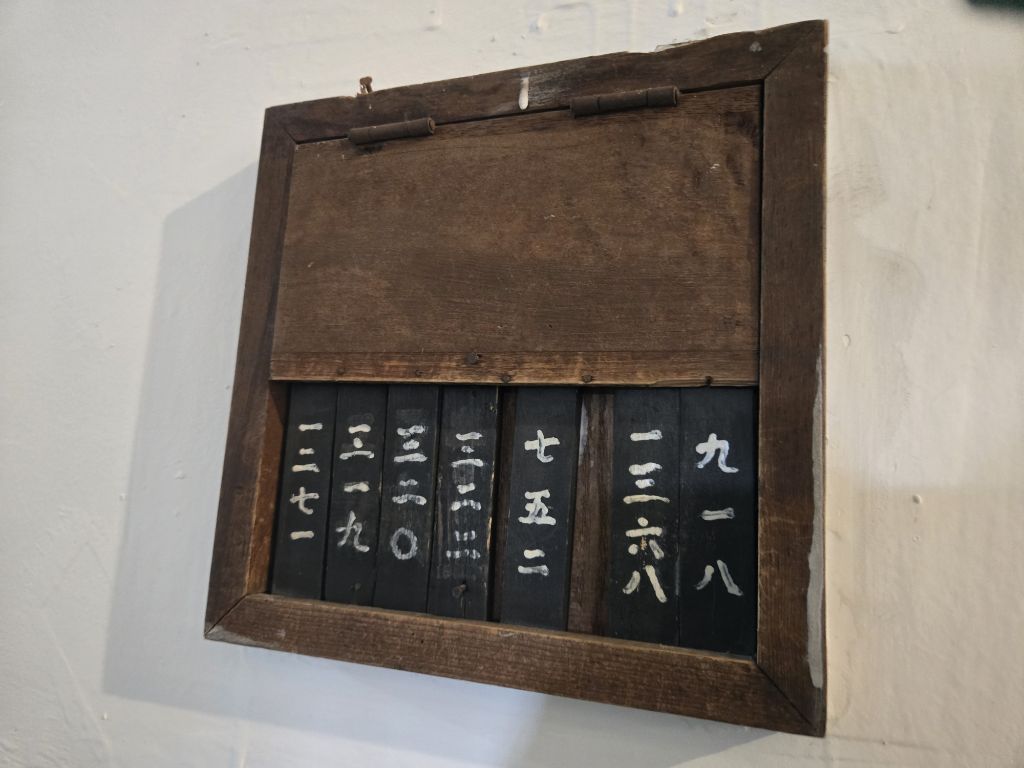 九一八
一三六八
七五二
三二〇
三一九
一二七一